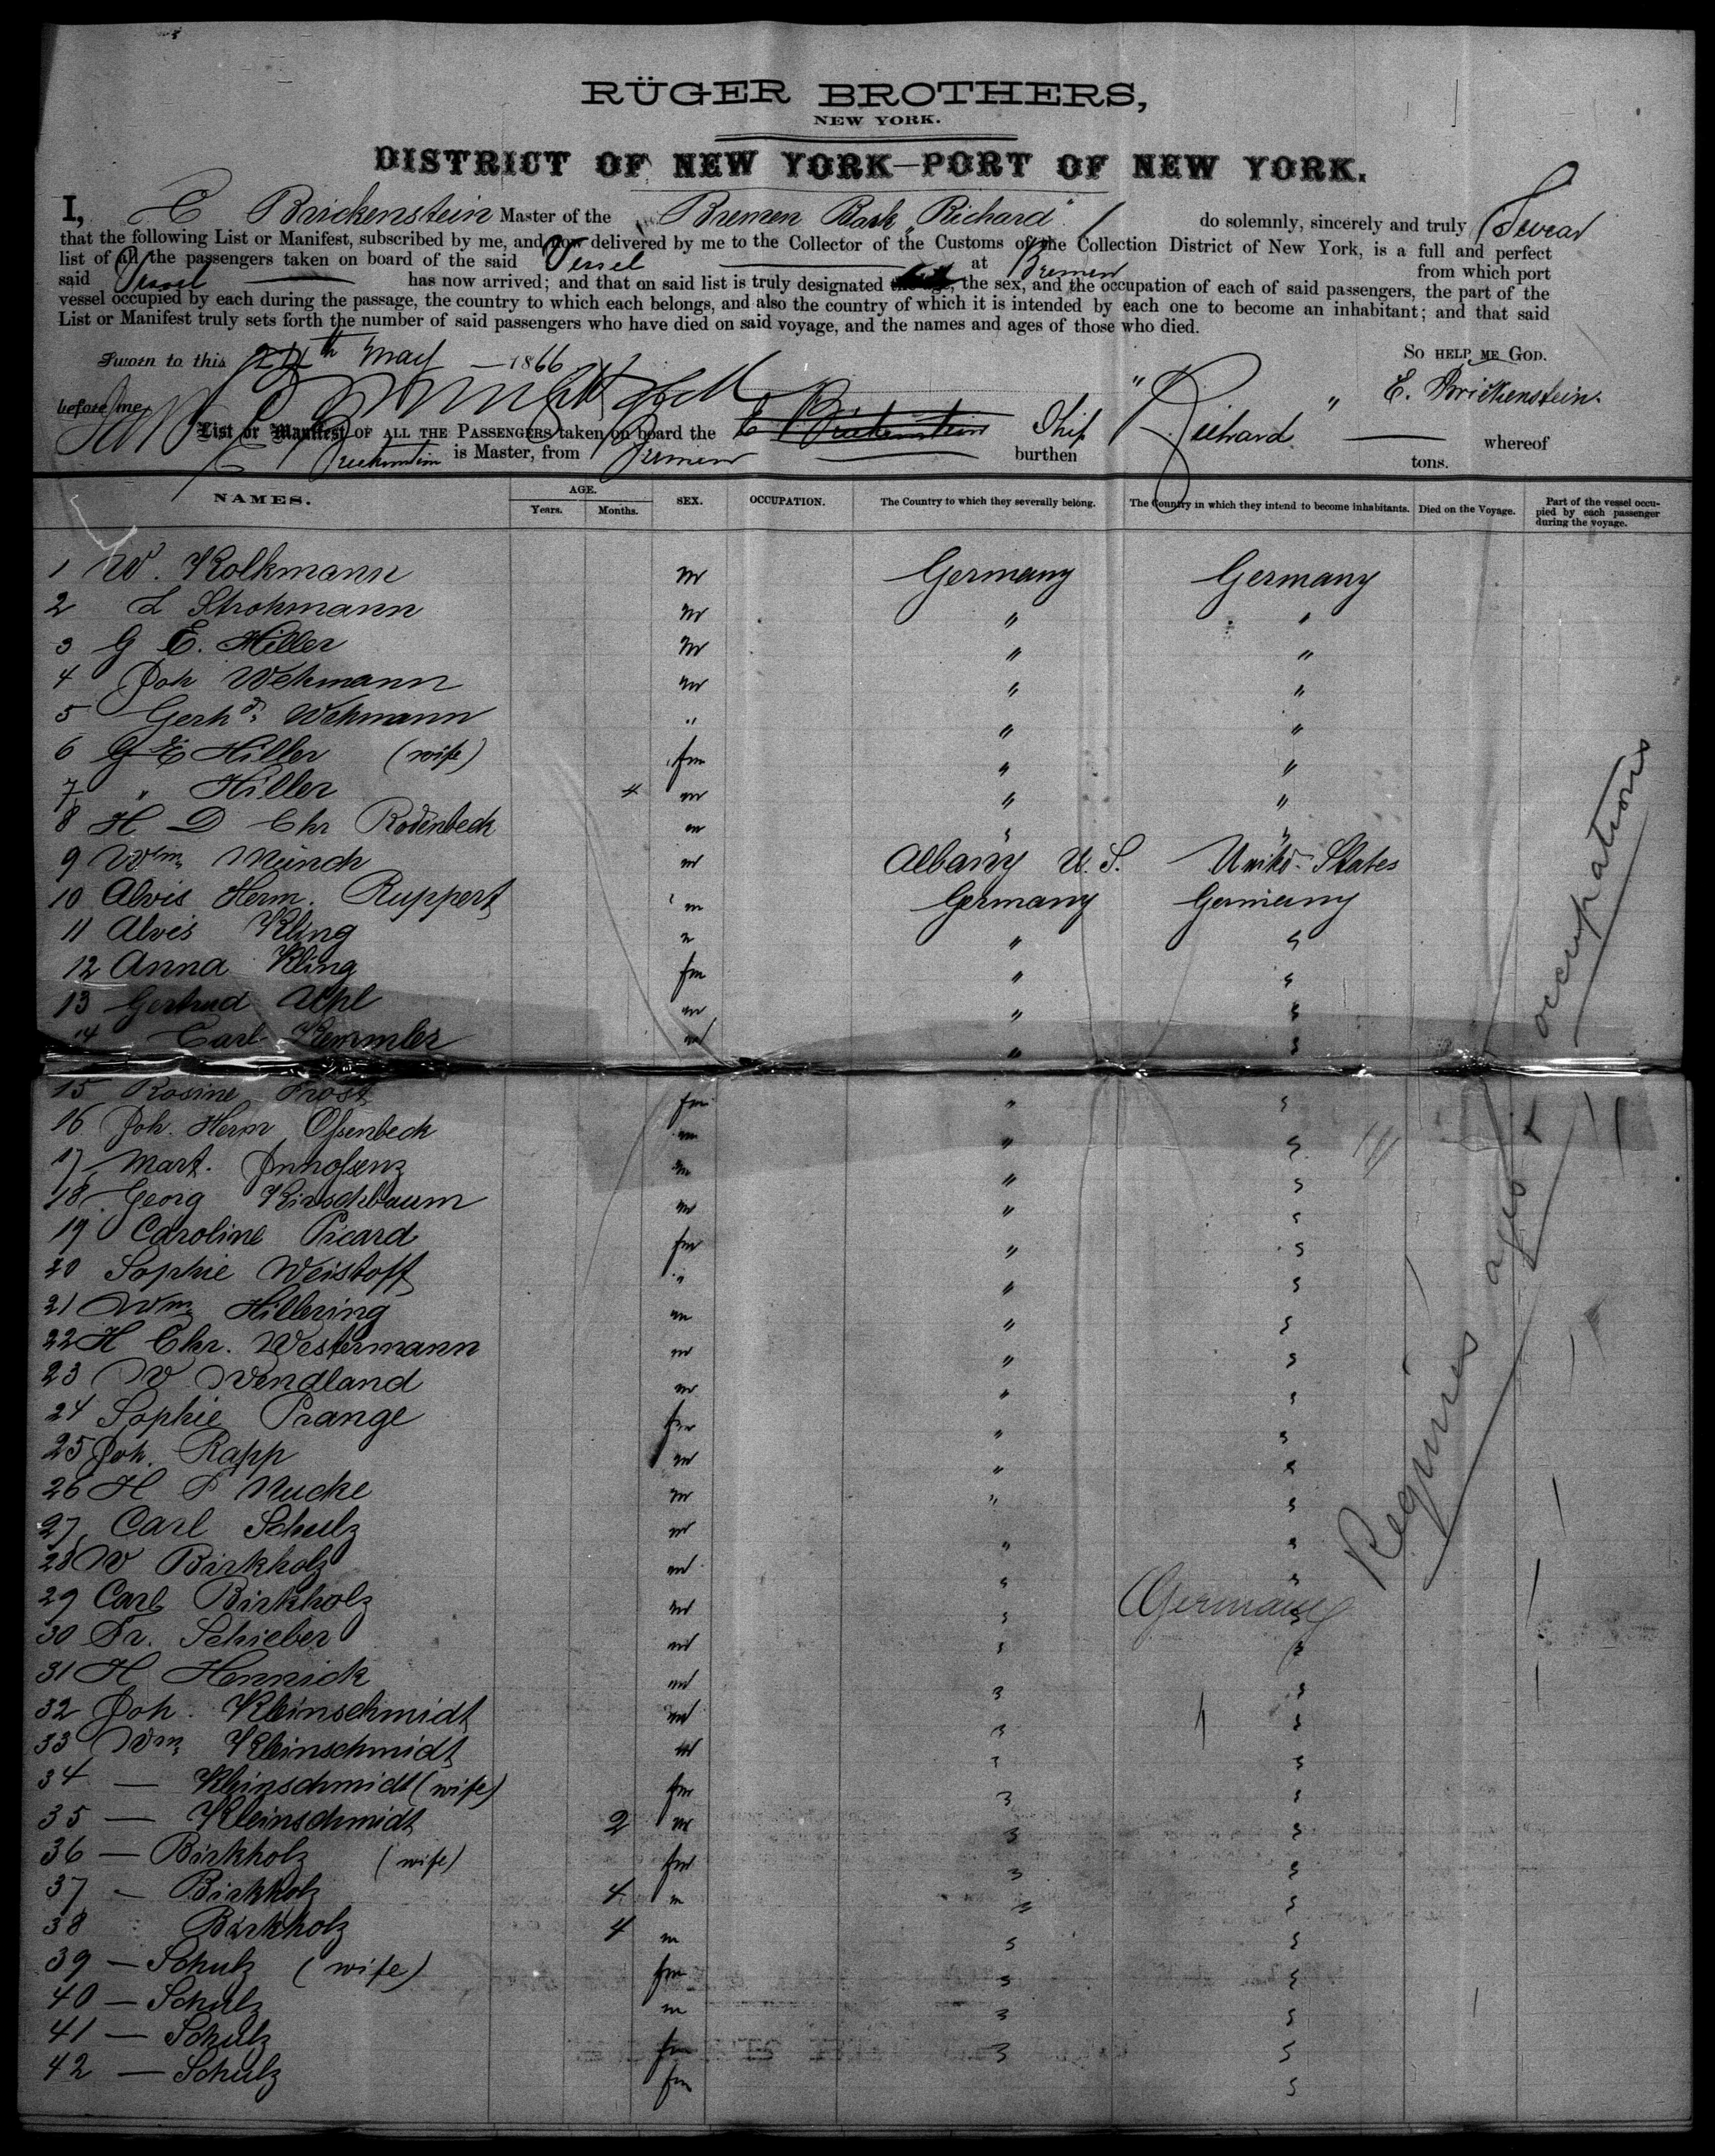 RÜGER BROTHERS,
NEW YORK.
DISTRICT OF NEW YORK—PORT OF NEW YORK.
I, E Brickenstein Master of the Bremen Bark „Richard" do solemnly, sincerely and truly Swear
that the following List or Manifest, subscribed by me, and now delivered by me to the Collector of the Customs of the Collection District of New York, is a full and perfect
list of all the passengers taken on board of the said Vessel at Bremen from which port
said Vessel has now arrived; and that on said list is truly designated the age, the sex, and the occupation of each of said passengers, the part of the
vessel occupied by each during the passage, the country to which each belongs, and also the country of which it is intended by each one to become an inhabitant; and that said
List or Manifest truly sets forth the number of said passengers who have died on said voyage, and the names and ages of those who died.
So help me God.
Sworn to this 24th May 1866
before me E. Brickenstein.
List or Manifest of all the Passengers taken on board the E Brickenstein Ship "Richard" whereof
E Brickenstein is Master, from Bremen burthen tons.
NAMES. AGE. Years. Months. SEX. OCCUPATION. The Country to which they severally belong. The Country in which they intend to become inhabitants. Died on the Voyage. Part of the vessel occupied by each passenger during the voyage.
1 W. Kolkmann m Germany Germany
2 L Strohmann m " "
3 G E. Hiller m " "
4 Joh Wehmann m " "
5 Gerhd. Wehmann " " "
6 G E Hiller (wife) fm " "
7 " Hiller 4 m " "
8 H D Chr Rodenbeck m " "
9 Wm. Münch m Albany U. S. United States
10 Alvis Herm. Ruppert m Germany Germany
11 Alvis Kling m " "
12 Anna Kling fm " "
13 Gertrud m " "
14 Carl Kemmler m " "
15 Rosine Prost fm " "
16 Joh. Herm Ossenbeck m " "
17 Mart. m " "
18 Georg Kirschbaum m " "
19 Caroline Picard fm " "
20 Sophie Weistoff " " "
21 Wm. Hillering m " "
22 H Chr. Westermann m " "
23 W Wendland m " "
24 Sophie Prange fm " "
25 Joh. Rapp m " "
26 H P Mucke m " "
27 Carl Schulz m " "
28 W Birkholz m " "
29 Carl Birkholz m " " Germany
30 Fr. Schieber m " "
31 H Hennick m " "
32 Joh. Kleinschmidt m " "
33 Wm. Kleinschmidt m " "
34 — Kleinschmidt (wife) fm " "
35 — Kleinschmidt 2 m " "
36 — Birkholz (wife) fm " "
37 — Birkholz 4 m " "
38 " Birkholz 4 m " "
39 — Schulz (wife) fm " "
40 — Schulz m " "
41 — Schulz fm " "
42 — Schulz fm "
Requires ages & occupations